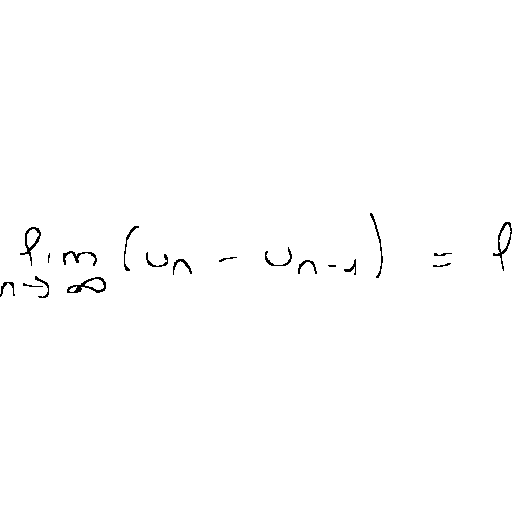 \lim_{n \to \infty} (u_n - u_{n-1}) = l